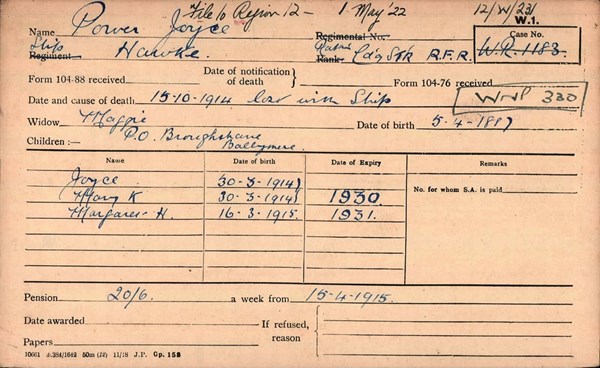 File to Region 12 - 1 May '22 12/W/231
W.1.
Name Power Joyce Regimental No. Case No.
Ship Regiment Hawke. Rating Rank Ldg Stk R.F.R. W.R. 1183.
Form 104-88 received Date of notification of death Form 104-76 received
Date and cause of death 15-10-1914 Lost with Ship WNP 330
Widow Maggie Date of birth 5-4-1887
Children:— P.O. Broughshane
Ballymena
Name Date of birth Date of Expiry Remarks
Joyce 30-3-1914)
Mary K 30-3-1914) 1930. No. for whom S.A. is paid
Margaret H. 16-3-1915. 1931.
Pension 20/6. a week from 15-4-1915.
Date awarded If refused, reason
Papers
10661 50m (12) 11/18 J.P. Gp. 158